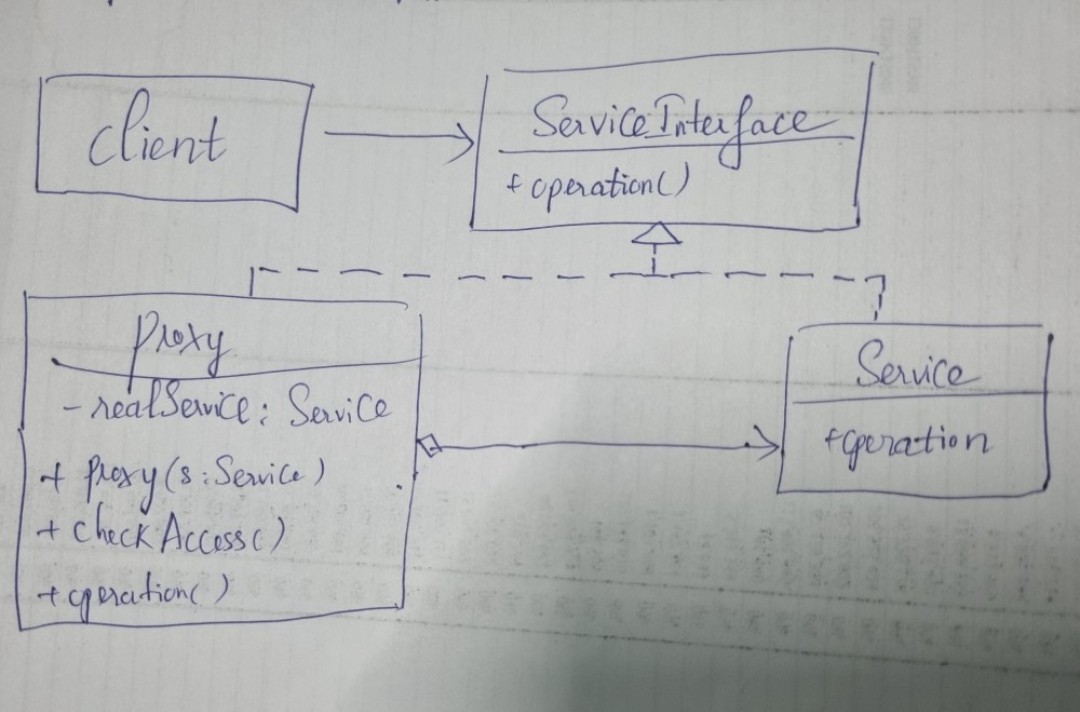 client
ServiceInterface
+ operation()
Proxy
- realService : Service
+ proxy(s : Service)
+ checkAccess()
+ operation()
Service
+operation